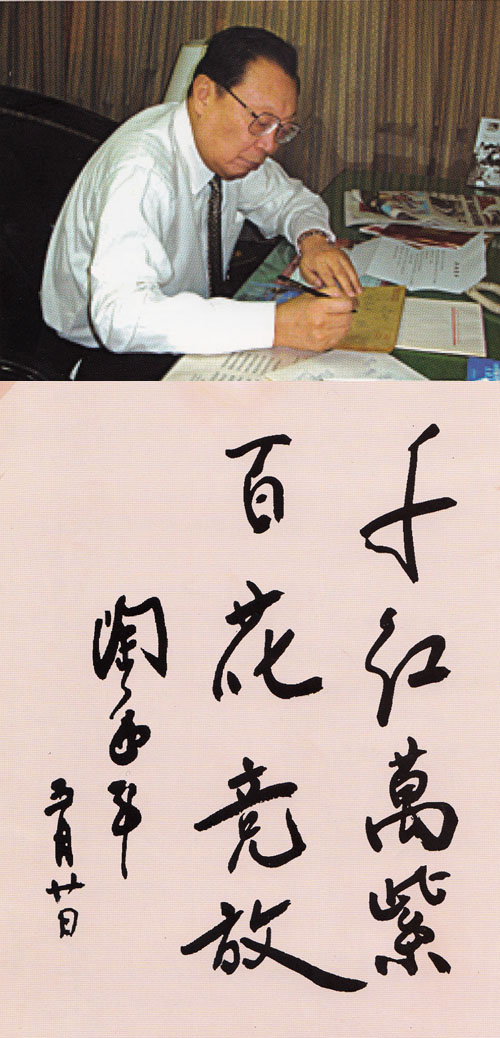 千红萬紫
百花竞放
陶西平
五月廿日